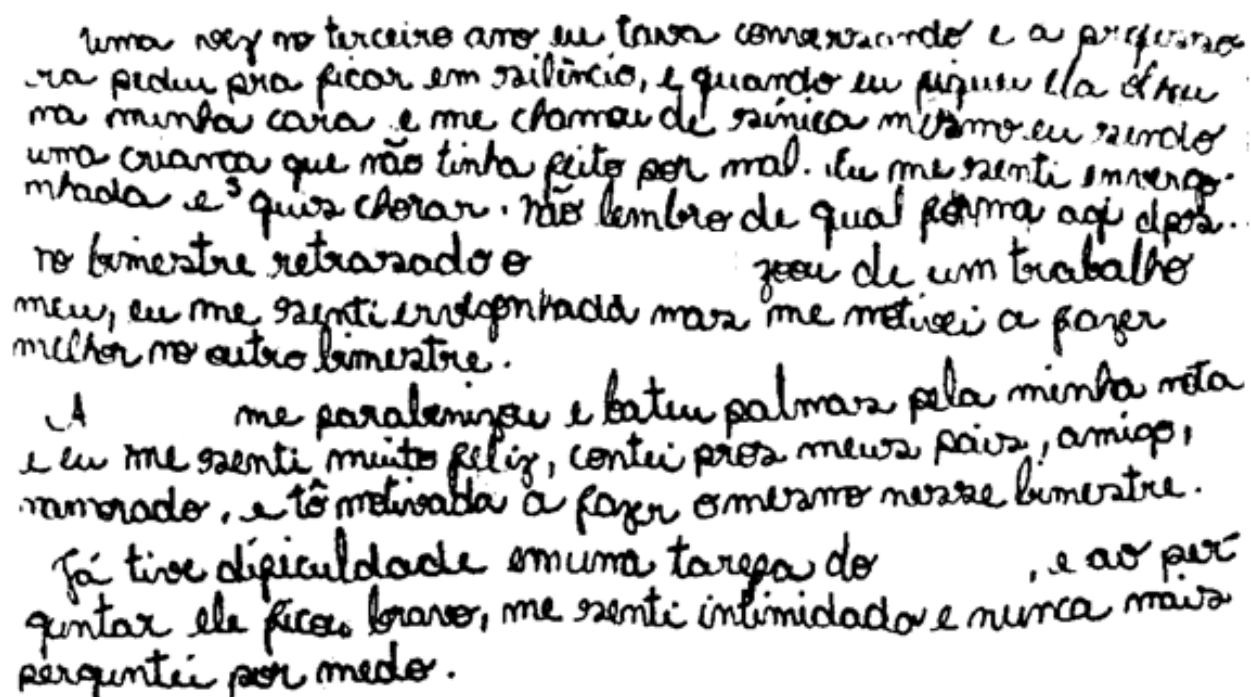 uma vez no terceiro ano eu tava conversando e a professo
ra pediu pra ficar em silêncio, e quando eu fiquei ela olhou
na minha cara e me chamou de sínica mesmo eu sendo
uma criança que não tinha feito por mal. Eu me senti envergo-
nhada e quis chorar. não lembro de qual forma agi dps..
no bimestre retrasado o zoou de um trabalho
meu, eu me senti envergonhada mas me motivei a fazer
melhor no outro bimestre.
A me parabenizou e bateu palmas pela minha nota
e eu me senti muito feliz, contei pros meus pais, amigo,
namorado, e tô motivada a fazer o mesmo nesse bimestre.
Já tive dificuldade em uma tarefa do , e ao per
guntar ele ficou bravo, me senti intimidada e nunca mais
perguntei por medo.